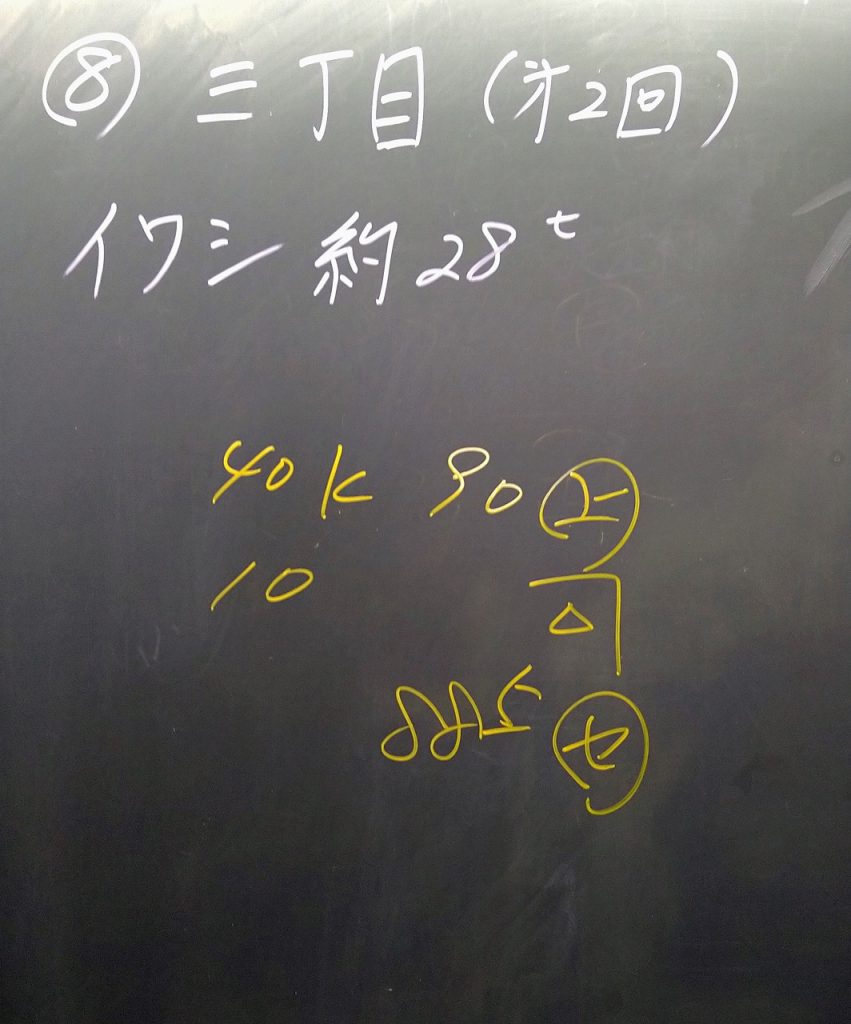 ⑧ 三丁目(㐧2回)
イワシ 約28t
40K 90 ㋓
10
㋝